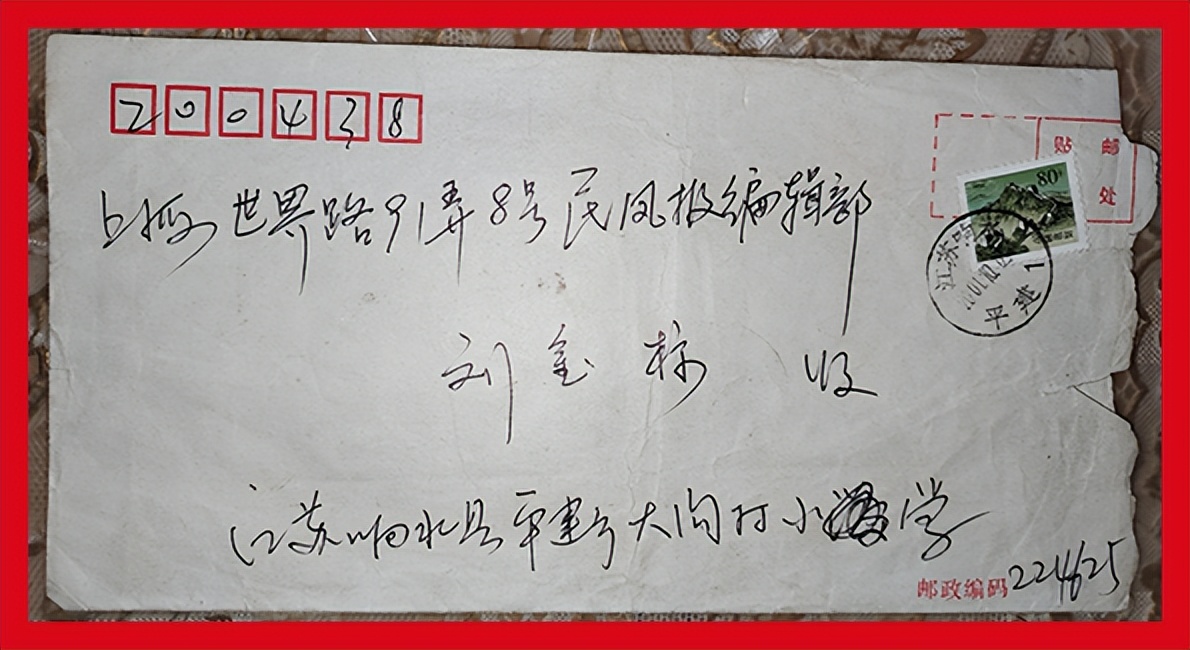 200438
贴 邮
处
80分
上海世界路91弄8号民风报编辑部
江苏响水
平建 1
刘金标 收
江苏响水县平建乡大闸村小学
邮政编码 224625